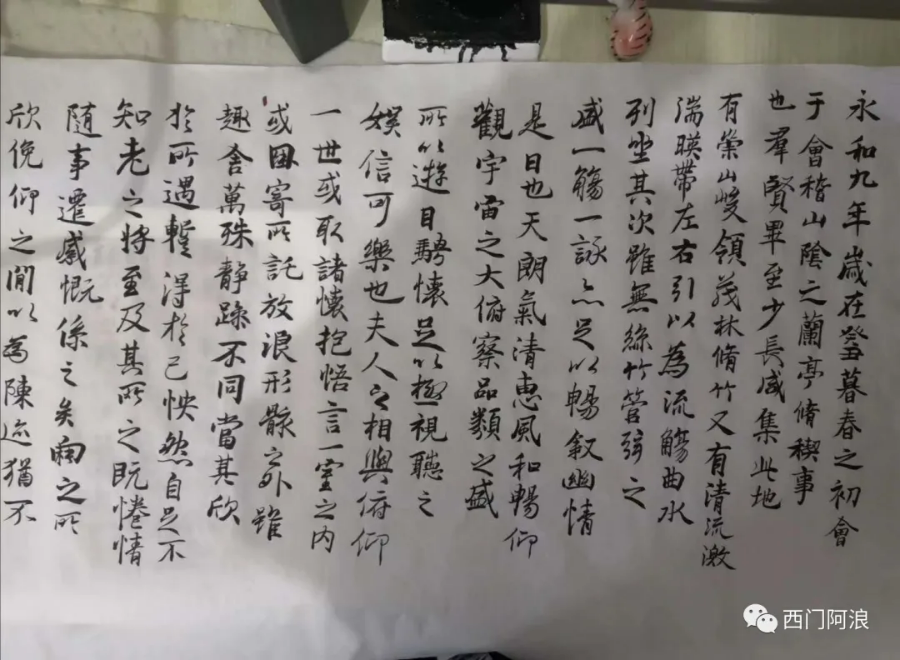 永和九年歲在癸暮春之初會
于會稽山陰之蘭亭脩稧事
也羣賢畢至少長咸集此地
有崇山峻領茂林脩竹又有清流激
湍暎帶左右引以為流觴曲水
列坐其次雖無絲竹管弦之
盛一觴一詠亦足以暢叙幽情
是日也天朗氣清惠風和暢仰
觀宇宙之大俯察品類之盛
所以遊目騁懷足以極視聽之
娛信可樂也夫人之相與俯仰
一世或取諸懷抱悟言一室之内
或因寄所託放浪形骸之外雖
趣舍萬殊静躁不同當其欣
於所遇蹔得於己怏然自足不
知老之将至及其所之既惓情
随事遷感慨係之矣向之所
欣俛仰之閒以為陳迹猶不
西门阿浪